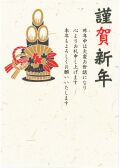 謹賀新年
昨年中は大変お世話になり
心よりお礼申し上げます
本年もよろしくお願いいたします